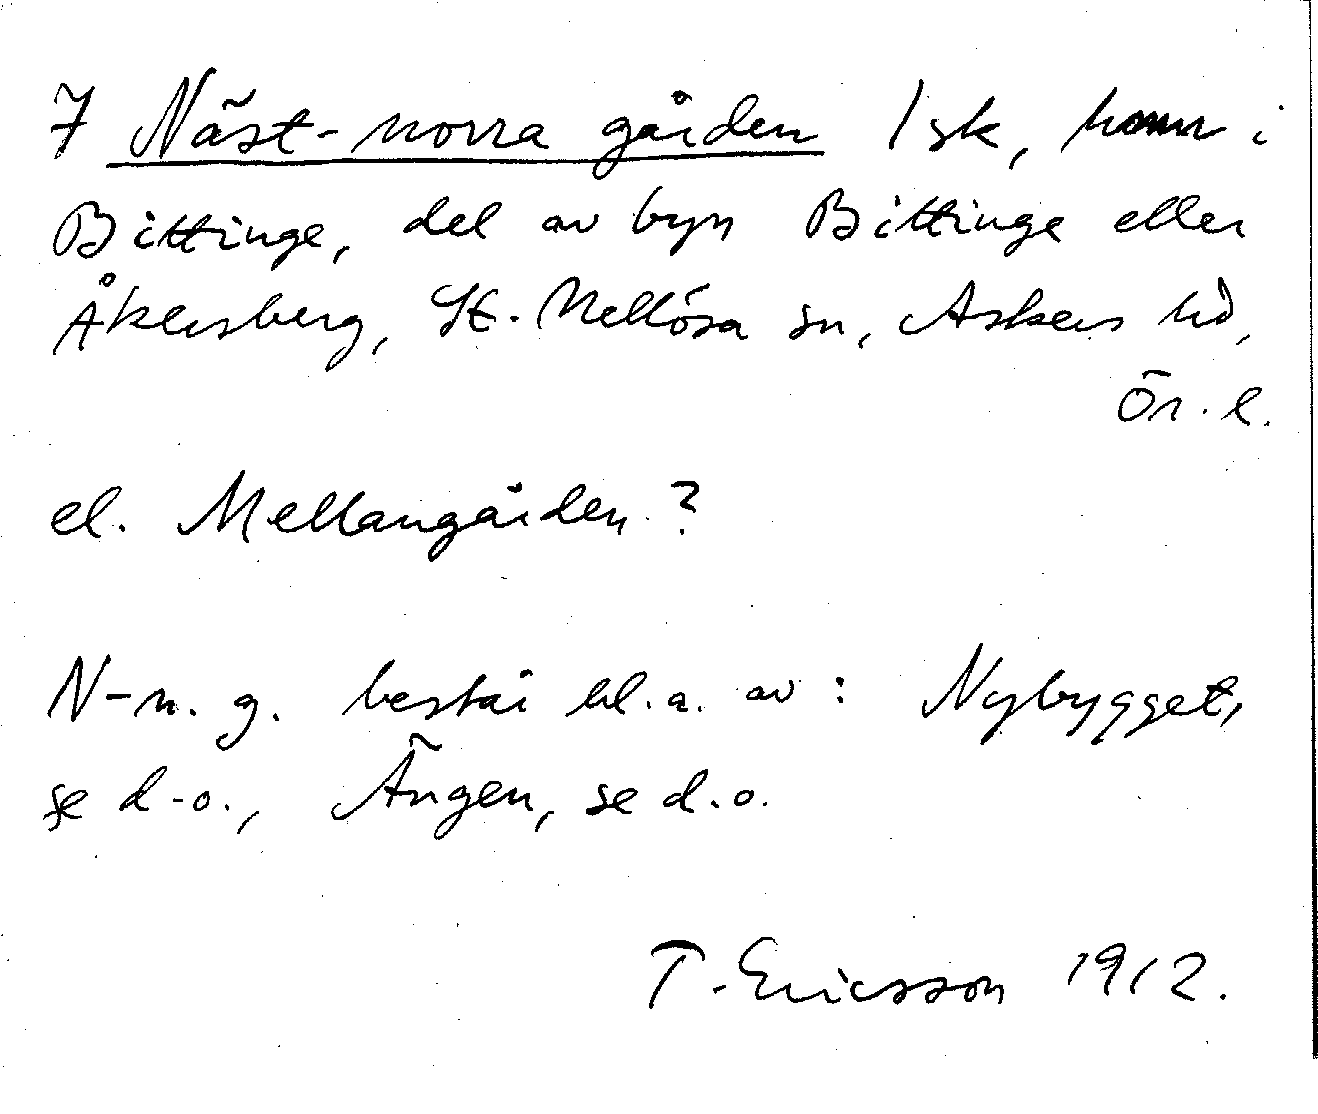 7 Näst-norra gården 1 sk, hmn i
Bittinge, del av byn Bittinge eller
Åkersberg, St. Mellösa sn, Askers hd,
Ör. l.
el. Mellangården ?
N-n. g. består bl. a. av : Nybygget,
se d.o., Ängen, se d.o.
T. Ericsson 1912.